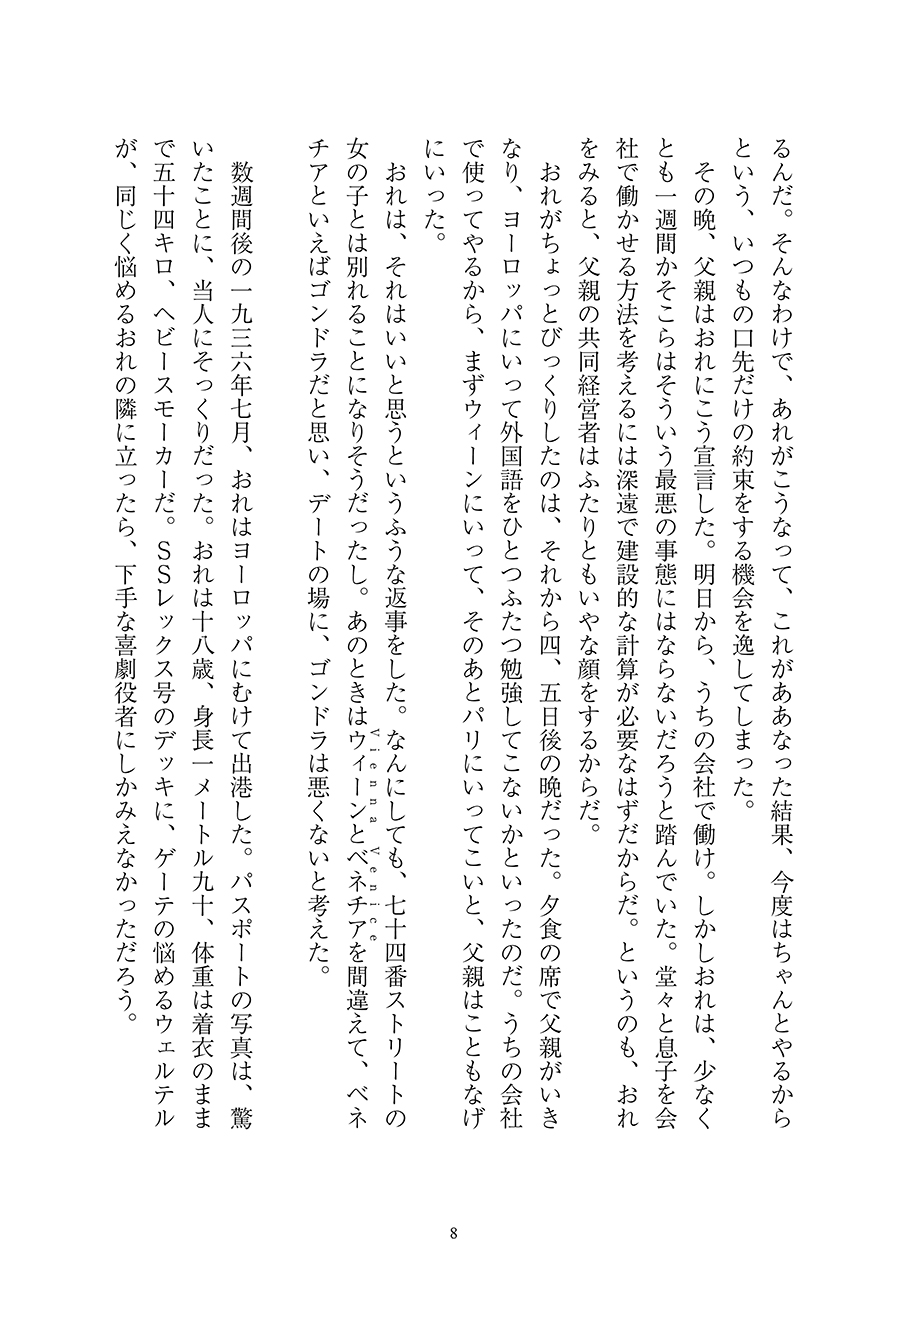 るんだ。そんなわけで、あれがこうなって、これがああなった結果、今度はちゃんとやるから
という、いつもの口先だけの約束をする機会を逸してしまった。
その晩、父親はおれにこう宣言した。明日から、うちの会社で働け。しかしおれは、少なく
とも一週間かそこらはそういう最悪の事態にはならないだろうと踏んでいた。堂々と息子を会
社で働かせる方法を考えるには深遠で建設的な計算が必要なはずだからだ。というのも、おれ
をみると、父親の共同経営者はふたりともいやな顔をするからだ。
おれがちょっとびっくりしたのは、それから四、五日後の晩だった。夕食の席で父親がいき
なり、ヨーロッパにいって外国語をひとつふたつ勉強してこないかといったのだ。うちの会社
で使ってやるから、まずウィーンにいって、そのあとパリにいってこいと、父親はこともなげ
にいった。
おれは、それはいいと思うというふうな返事をした。なんにしても、七十四番ストリートの
女の子とは別れることになりそうだったし。あのときはウィーンとベネチアを間違えて、ベネ
Vienna Venice
チアといえばゴンドラだと思い、デートの場に、ゴンドラは悪くないと考えた。
数週間後の一九三六年七月、おれはヨーロッパにむけて出港した。パスポートの写真は、驚
いたことに、当人にそっくりだった。おれは十八歳、身長一メートル九十、体重は着衣のまま
で五十四キロ、ヘビースモーカーだ。SSレックス号のデッキに、ゲーテの悩めるウェルテル
が、同じく悩めるおれの隣に立ったら、下手な喜劇役者にしかみえなかっただろう。
8